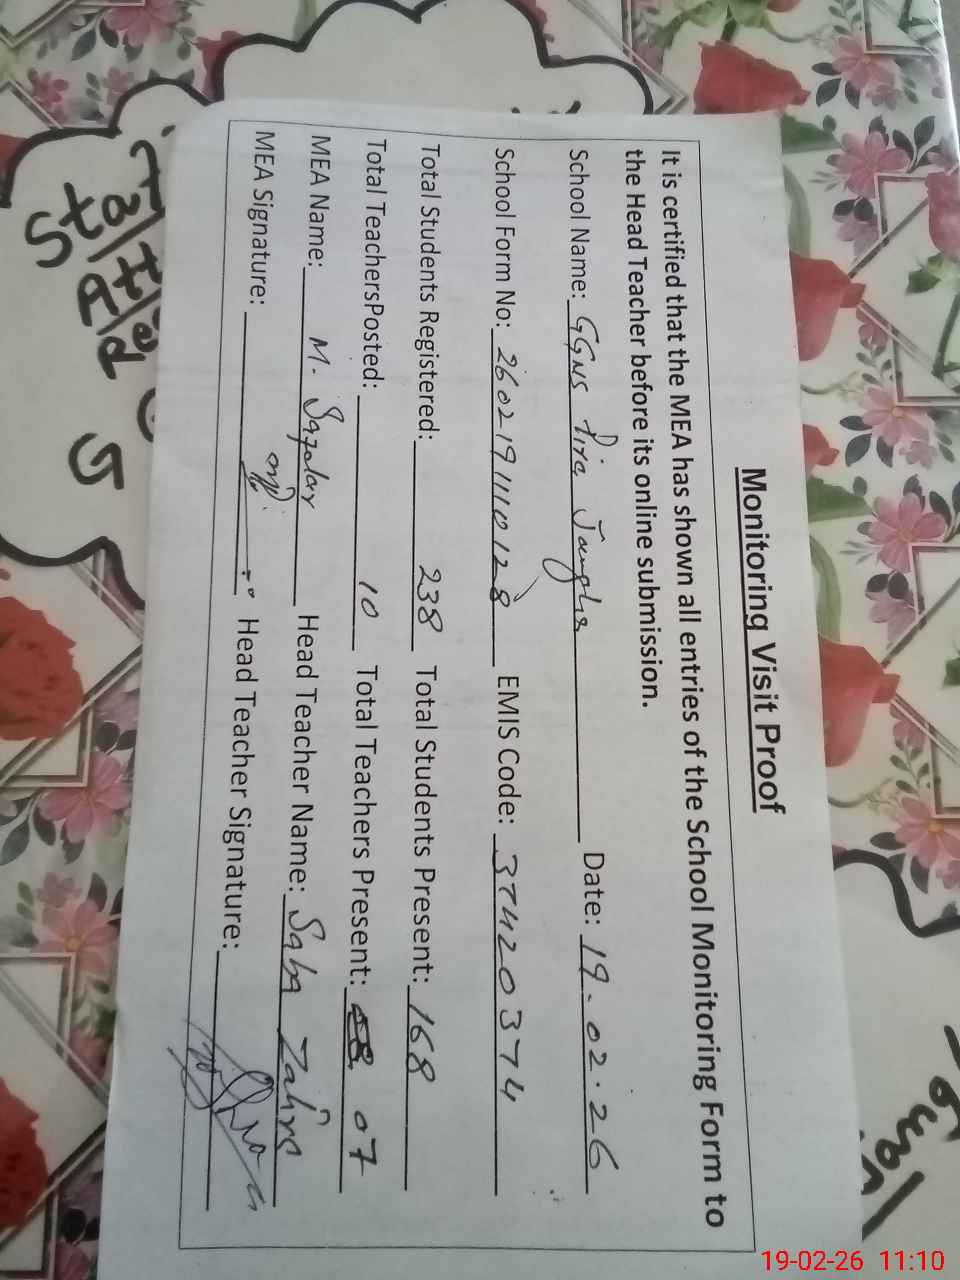 Monitoring Visit Proof
It is certified that the MEA has shown all entries of the School Monitoring Form to
the Head Teacher before its online submission.
School Name: GGNS Pira Jangla Date: 19.02.26
School Form No: 2602191110128 EMIS Code: 37420374
Total Students Registered: 238 Total Students Present: 168
Total TeachersPosted: 10 Total Teachers Present: 07
MEA Name: M. Safdar Head Teacher Name: Saba Zahra
MEA Signature: Head Teacher Signature:
19-02-26 11:10